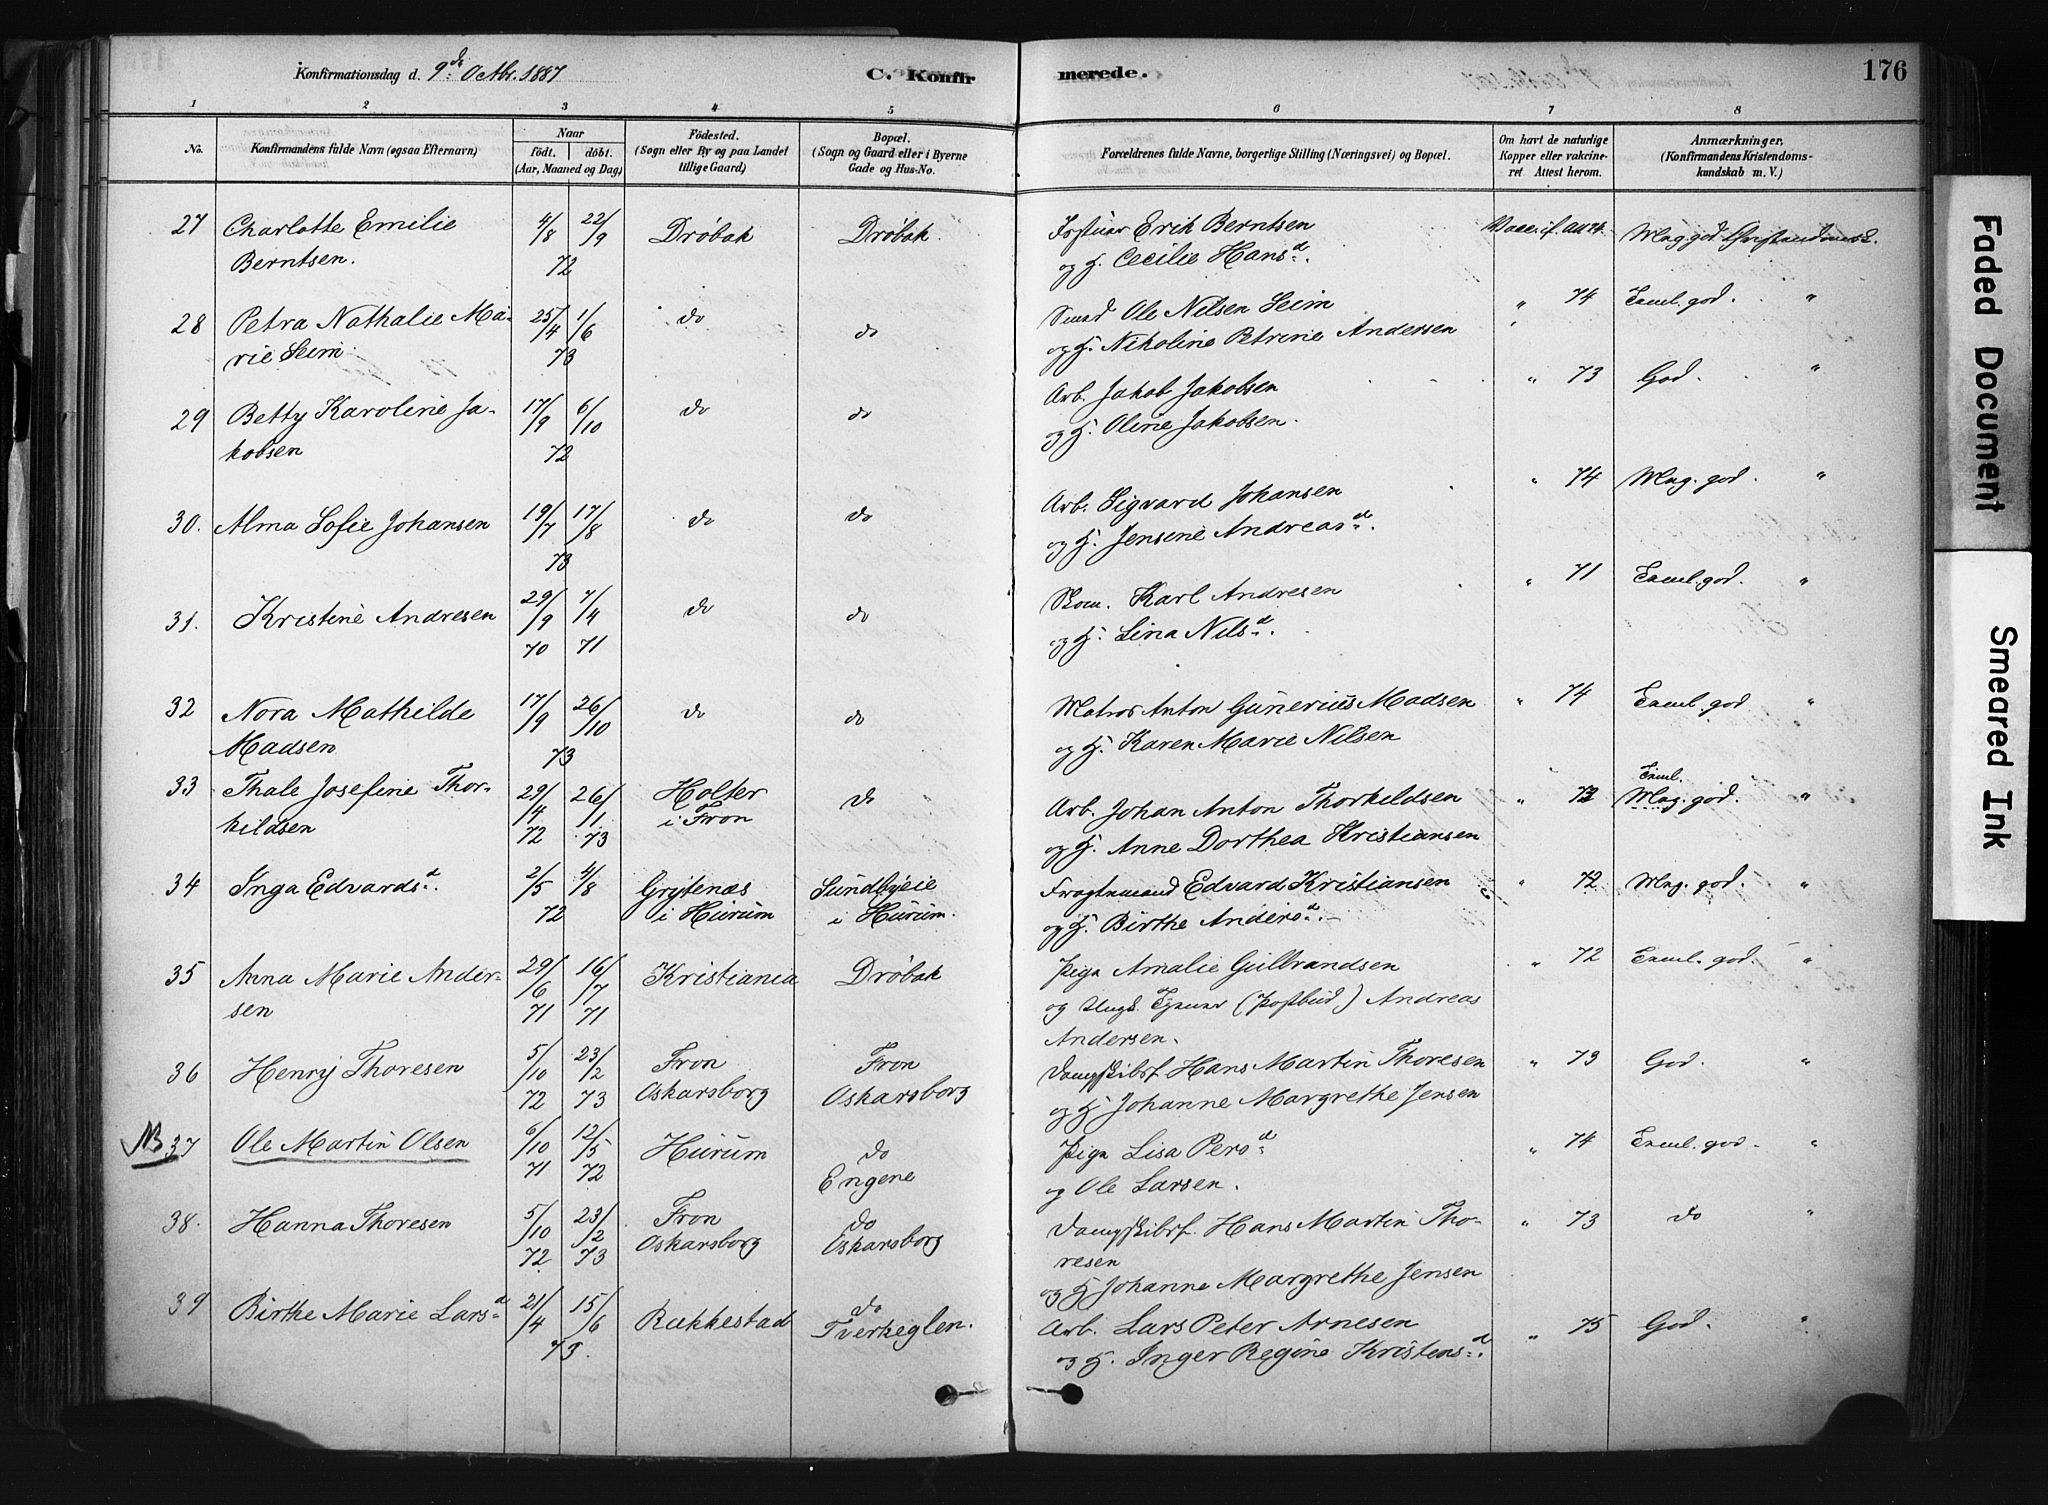 Konfirmationsdag d. 9de Octbr. 1887
C. Konfirmerede.
176
1 2 3 4 5 6 7 8
No.
Konfirmandens fulde Navn (ogsaa Efternavn)
Naar
födt. döbt.
(Aar, Maaned og Dag)
Födested.
(Sogn eller By og paa Landet
tillige Gaard)
Bopæl.
(Sogn og Gaard eller i Byerne
Gade og Hus-No.
Forældrenes fulde Navne, borgerlige Stilling (Næringsvei) og Bopæl.
Om havt de naturlige
Kopper eller vakcine-
ret Attest herom.
Anmærkninger,
(Konfirmandens Kristendoms-
kundskab m. V.)
27 Charlotte Emilie 4/8 22/9 Dröbak Dröbak. Erik Berntsen Vacc. if. Att 74. Mag. god Kristendomsk.
Berntsen. 72 og H. Cecilie Hansd.
28 Petra Nathalie Ma- 25/4 1/6 do do Smed Ole Nilsen Seim " 74 Exml. god. "
rie Seim. 73 og H. Nikoline Petrine Andersen
29 Betty Karoline Ja- 17/9 6/10 do do Arb. Jakob Jakobsen " 73 God. "
kobsen 72 og H. Oline Jakobsen.
30. Alma Sofie Johansen 19/7 17/8 do do Arb. Sigvard Johansen " 74 Mag. god. "
73 og H. Jensine Andreasd.
31. Kristine Andresen 29/9 7/4 do do Skom. Karl Andresen " 71 Exml. god. "
70 71 og H. Lina Nilsd.
32 Nora Mathilde 17/9 26/10 do do Matros Anton Gunerius Madsen " 74 Exml. god "
Madsen 73 og H. Karen Marie Nilsen
33 Thale Josefine Thor- 29/4 26/1 Holter do Arb. Johan Anton Thorkildsen " 73 Exml. Mag. god. "
kildsen 72 73 i Fron og H. Anne Dorthea Kristiansen
34 Inga Edvardsd. 2/5 4/8 Grytenæs Sundbyeie Fragtemand Edvard Kristiansen " 72 Mag. god. "
72 i Hurum i Hurum. og H. Birthe Andersd.
35 Anna Marie Ander- 29/6 16/7 Kristiania Dröbak Piga Amalie Gulbrandsen " 72 Exml. god. "
sen 71 71 og Ungk. Tjener (Postbud) Andreas
Andersen.
36 Henry Thoresen 5/10 23/2 Fron Fron Dampskibsf. Hans Martin Thoresen " 73 God. "
72 73 Oskarsborg Oskarsborg og H Johanne Margrethe Jensen
NB 37 Ole Martin Olsen 6/10 12/5 Hurum do Piga Lisa Persd " 74 Exml. god. "
71 72 Engene og Ole Larsen.
38. Hanna Thoresen 5/10 23/2 Fron do Dampskibsf. Hans Martin Tho- " 73 do "
72 73 Oskarsborg Oskarsborg resen
og H Johanne Margrethe Jensen
39 Birthe Marie Larsd 21/4 15/6 Rakkestad do Arb. Lars Peter Arnesen " 75 God. "
73. Tverkeglen. og H. Inger Regine Kristensd.
Faded Document
Smeared Ink